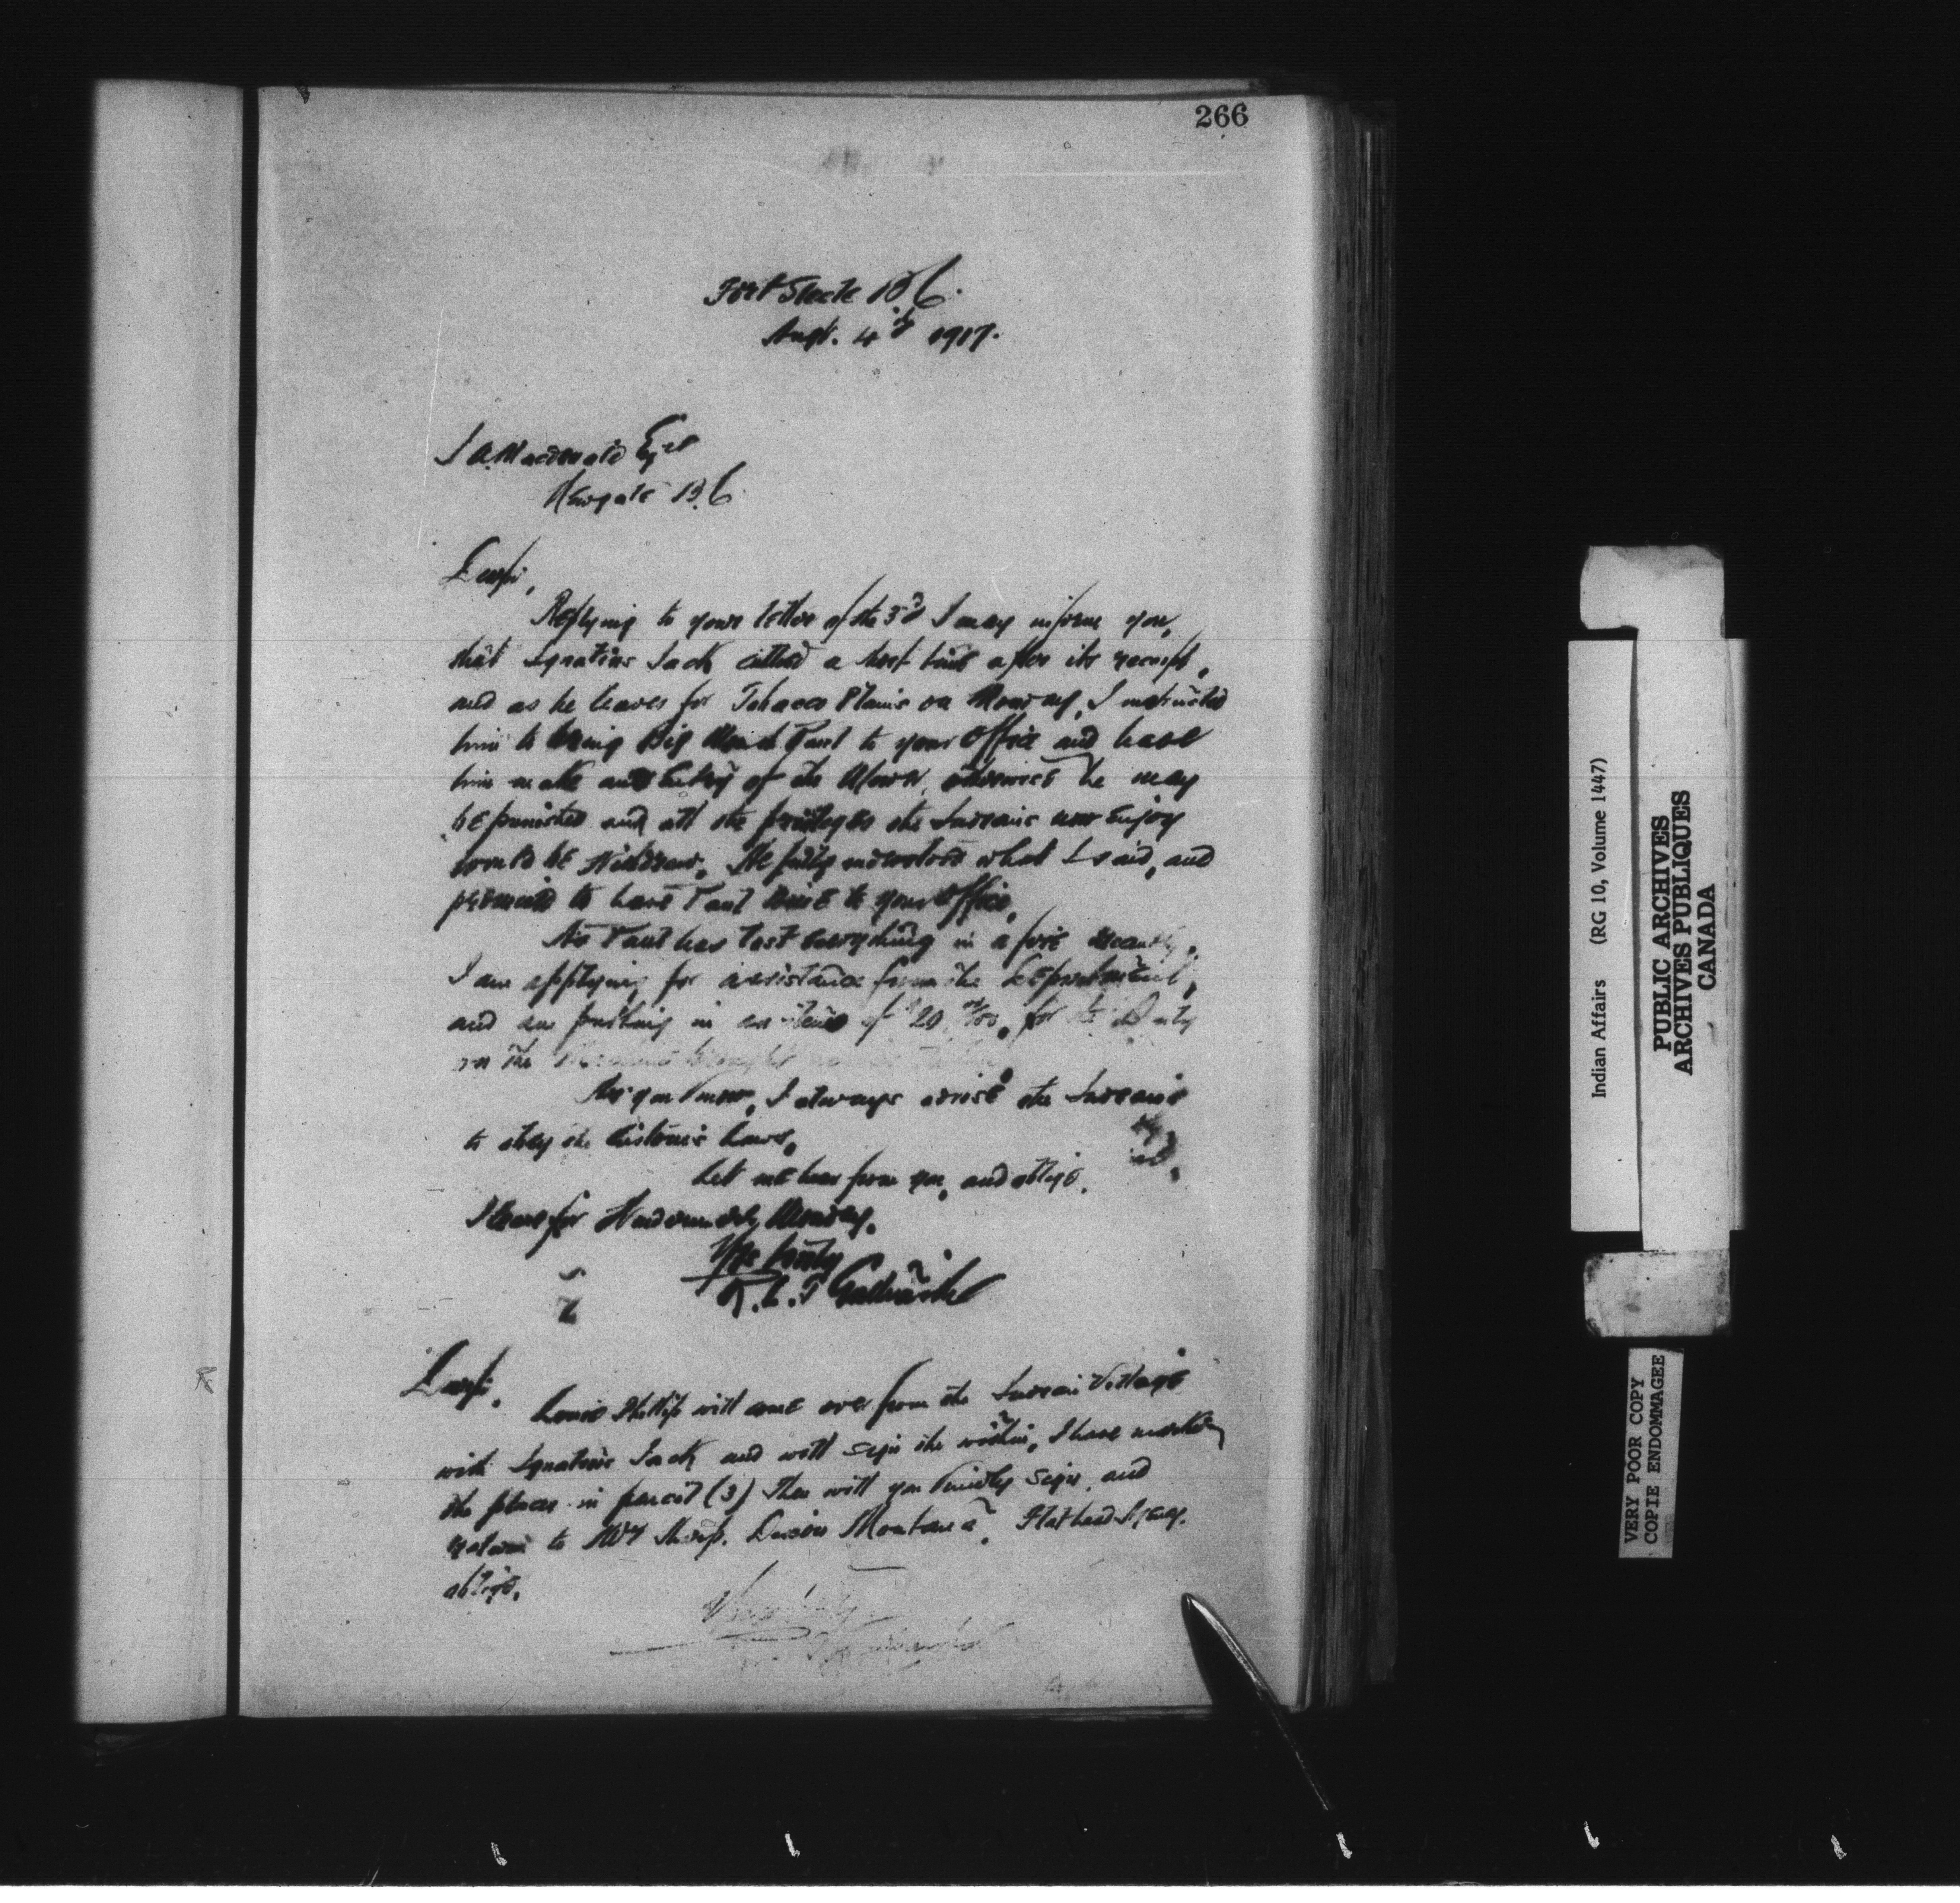 266
Fort Steele B.C.
Augt. 4th 1917.
J A. Macdonald Esqre
Newgate B.C
Dear Sir,
Replying to your letter of the 3rd I may inform you,
that Ignatius Jack called a short time after its receipt,
and as he leaves for Tobacco Plains on Monday, I instructed
him to bring Big Paul to your Office and have
him make an Entry of the, otherwise he may
be punished and all the privileges the Indians now Enjoy
would be Withdrawn. He fully understood what I said, and
promised to have Paul come to your Office.
As Paul has lost Everything in a fire recently,
I am applying for assistance from the Department,
and am putting in an item of $20 00/100, for the Duty
on the
As you know, I always advise the Indians
to obey the Customs Laws.
Let me hear from you, and oblige.
I leave for Windermere Monday.
Yrs truly
R. L. T Galbraith
Dear Sir,
Louis Phillip will come over from the Indian Village
with Ignatius Jack and will sign the within, I have marked
the places in pencil (3) Then will you kindly sign, and
return to Sharp. Dixon Montana. Flathead Agency.
oblige.
Indian Affairs (RG 10, Volume 1447)
PUBLIC ARCHIVES
ARCHIVES PUBLIQUES
CANADA
VERY POOR COPY
COPIE ENDOMMAGEE